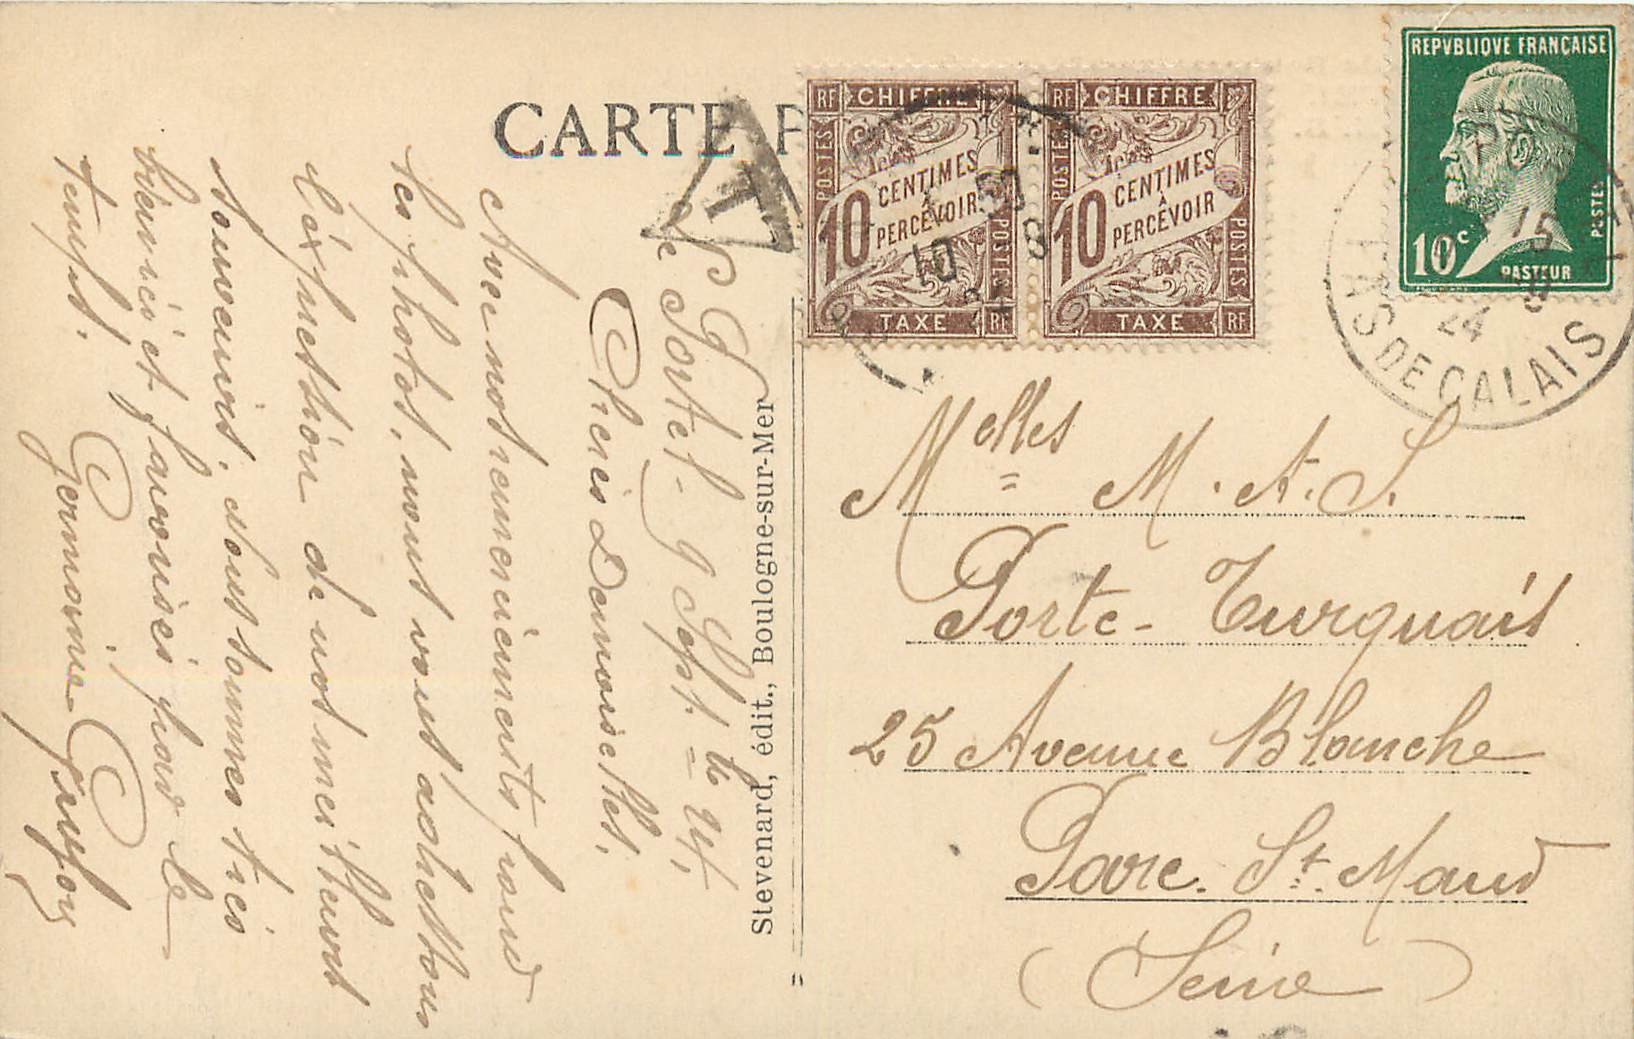 CARTE P
T
RF CHIFFRE
POSTES
10 CENTIMES
À
PERCEVOIR
POSTES
TAXE RF
RF CHIFFRE
POSTES
10 CENTIMES
À
PERCEVOIR
POSTES
TAXE RF
REPVBLIQVE FRANÇAISE
10c
POSTES
PASTEUR
15
9
24
PAS DE CALAIS
Le Portel - 9 Sept. bre 24.
Chères Demoiselles,
Avec nos remerciements pour
les photos, nous vous adressons
l'expression de nos meilleurs
souvenirs. Nous sommes très
bien ici et favorisés par le
temps.
Germaine
Stevenard, édit., Boulogne-sur-Mer
Melles M. A. S.
Porte-Turquais
25 Avenue Blanche
Parc St. Maur
(Seine)